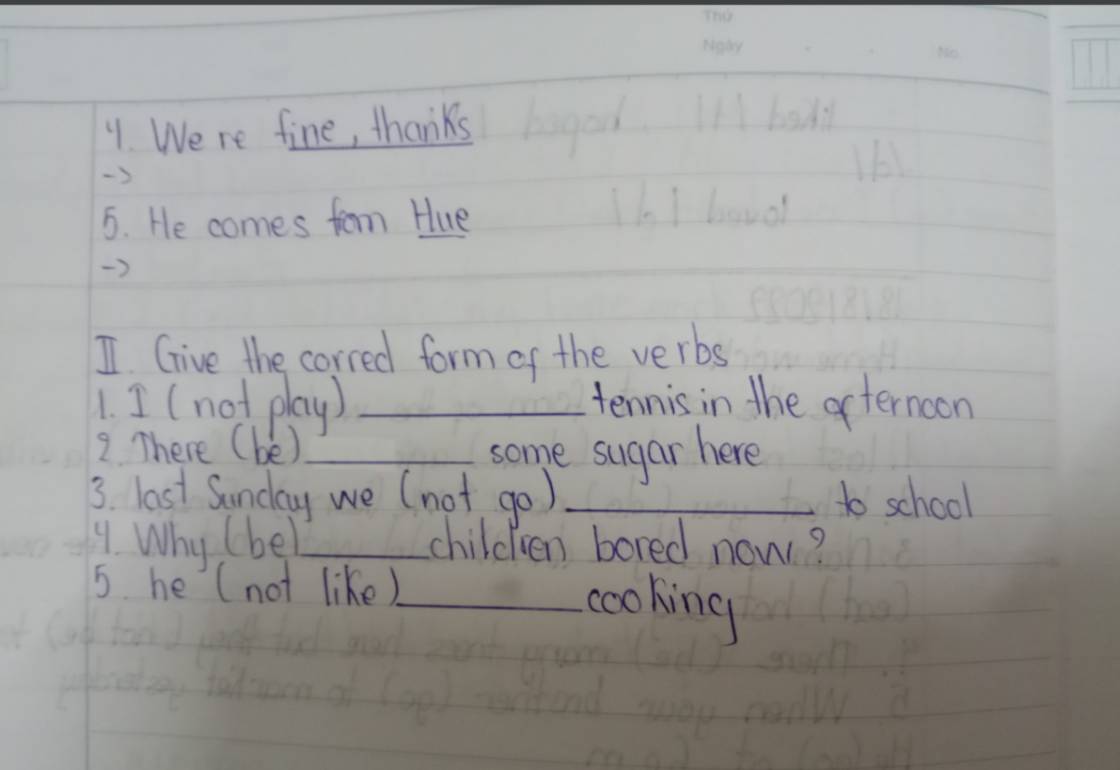 Thứ
Ngày
No.
4. We re fine, thanks
->
5. He comes fom Hue
->
II. Give the corred form of the verbs
1. I (not play) __________ tennis in the afternoon
2. There (be) __________ some sugar here
3. last Sunday we (not go) __________ to school
4. Why (be) ______ children bored now?
5. he (not like) ________ cooking